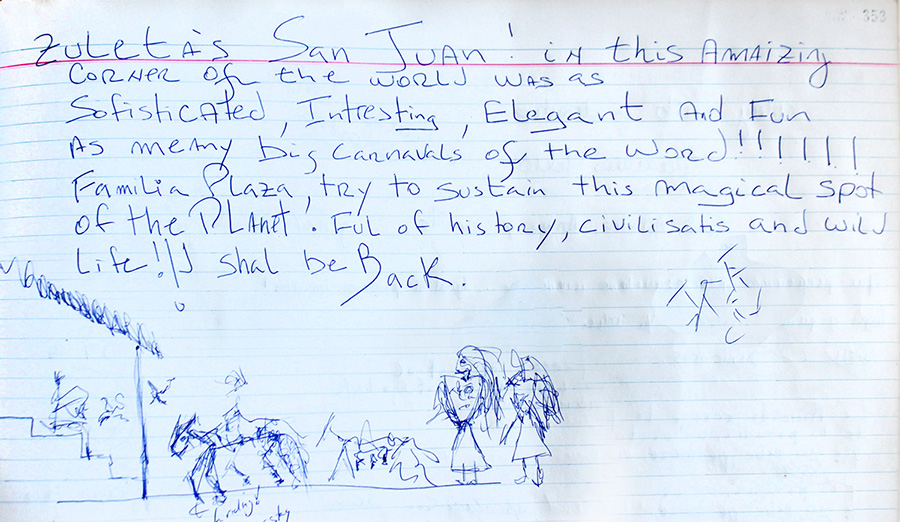 353
Zuleta's San Juan! in this Amaizing
corner of the world was as
Sofisticated, Intresting, Elegant And Fun
As meny big carnavals of the word!!!!!!!
Familia Plaza, try to sustain this magical spot
of the Planet. Ful of history, civilisatis and wild
Life!! I shal be Back.